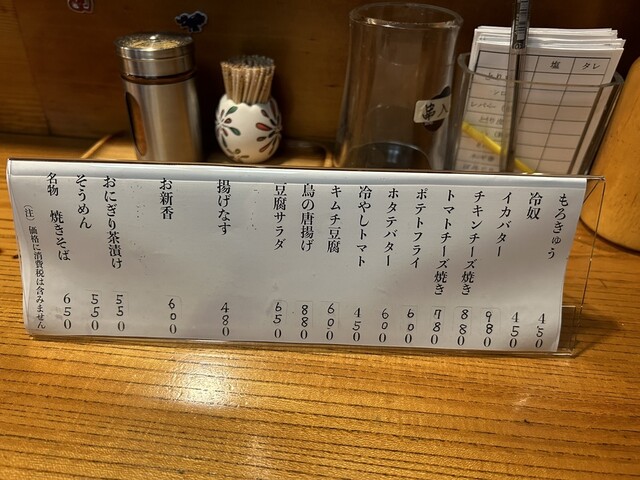 もろきゅう 450
冷奴 450
イカバター 980
チキンチーズ焼き 880
トマトチーズ焼き 780
ポテトフライ 600
ホタテバター 600
冷やしトマト 450
キムチ豆腐 600
鳥の唐揚げ 880
豆腐サラダ 650
揚げなす 480
お新香 600
おにぎり茶漬け 550
そうめん 550
名物 焼きそば 650
(注) 価格に消費税は含みません
串入
塩 タレ